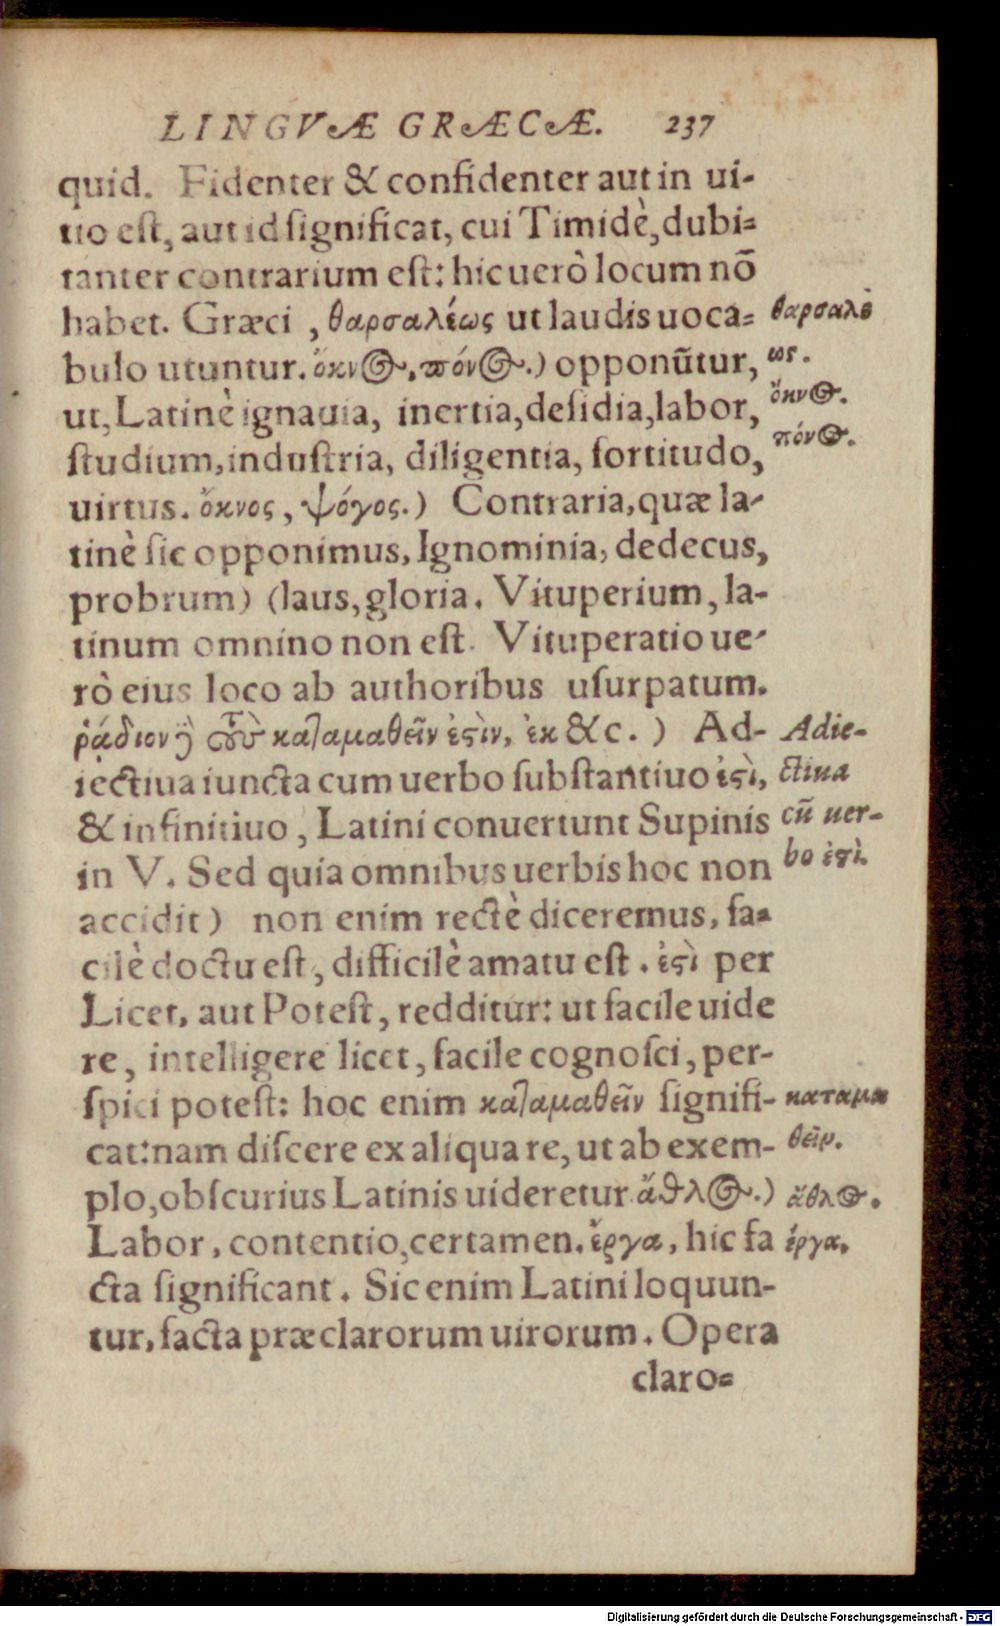 LINGVÆ GRÆCÆ. 237
quid. Fidenter & confidenter aut in ui-
tio est, aut id significat, cui Timidè, dubi-
tanter contrarium est: hic uerò locum nō
habet. Græci, θαρσαλέως ut laudis uoca-
bulo utuntur. ὄκνος, πόνος.) opponūtur,
ut, Latinè ignauia, inertia, desidia, labor,
studium, industria, diligentia, fortitudo,
uirtus. ὄκνος, ψόγος.) Contraria, quæ la-
tinè sic opponimus, Ignominia, dedecus,
probrum) (laus, gloria. Vituperium, la-
tinum omnino non est. Vituperatio ue-
rò eius loco ab authoribus usurpatum.
ῥᾴδιον καταμαθεῖν ἐϛὶν, ἐκ &c.) Ad-
iectiua iuncta cum uerbo substantiuo ἐϛὶ,
& infinitiuo, Latini conuertunt Supinis
in V. Sed quia omnibus uerbis hoc non
accidit) non enim rectè diceremus, fa-
cilè doctu est, difficilè amatu est. ἐϛὶ per
Licet, aut Potest, redditur: ut facile uide
re, intelligere licet, facile cognosci, per-
spici potest: hoc enim καταμαθεῖν signifi-
cat: nam discere ex aliqua re, ut ab exem-
plo, obscurius Latinis uideretur ἄθλος.)
Labor, contentio, certamen. ἔργα, hic fa
cta significant. Sic enim Latini loquun-
tur, facta præclarorum uirorum. Opera
claro-
θαρσαλέ
ως.
ὄκνος.
πόνος.
Adie-
ctiua
cū uer-
bo ἐϛὶ.
καταμα
θεῖν.
ἄθλος.
ἔργα.
Digitalisierung gefördert durch die Deutsche Forschungsgemeinschaft - DFG